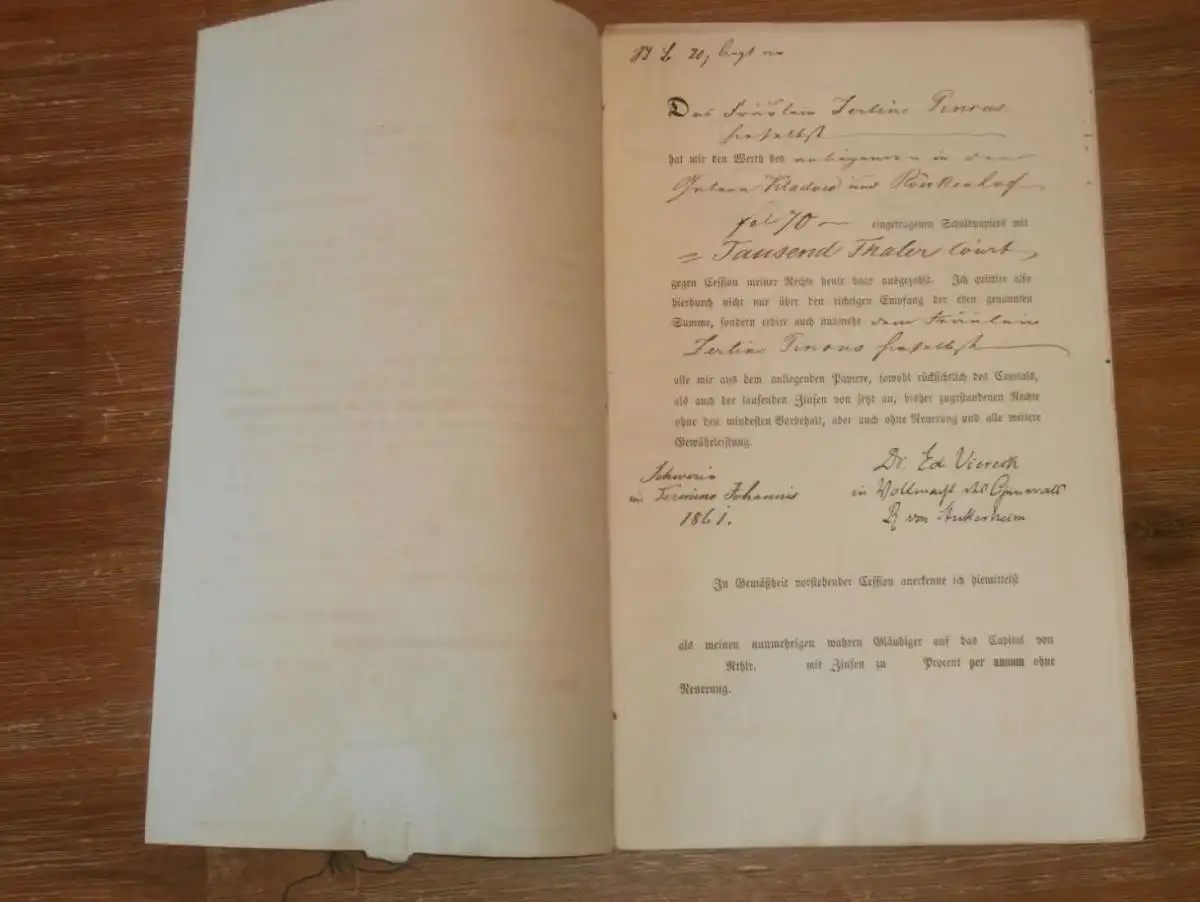 20,
Das Fräulein Zerline Pincus
hieselbst
hat mir den Werth des anliegenden in den
Gütern Kladow und Rönkenhof
fol 70 eingetragenen Schuldpapiers mit
= Tausend Thaler Court
gegen Cession meiner Rechte heute baar ausgezahlt. Ich quittire also
hierdurch nicht nur über den richtigen Empfang der eben genannten
Summe, sondern cedire auch nunmehr dem Fräulein
Zerline Pincus hieselbst
alle mir aus dem anliegenden Papiere, sowohl rücksichtlich des Capitals,
als auch der laufenden Zinsen von jetzt an, bisher zugestandenen Rechte
ohne den mindesten Vorbehalt, aber auch ohne Neuerung und alle weitere
Gewährleistung.
Schwerin
im Termino Johannis
1861.
Dr. Ed Viereck
in Vollmacht des
von
In Gemäßheit vorstehender Cession anerkenne ich hiemittelst
als meinen nunmehrigen wahren Gläubiger auf das Capital von
Rthlr. mit Zinsen zu Procent per annum ohne
Neuerung.